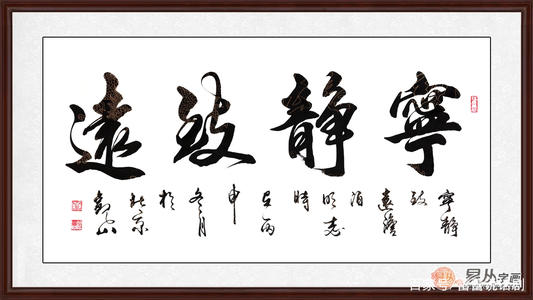 寧静致遠
寧静
致
遠澹
泊
明志
時
在丙
申
冬月
於
北京
易从字画